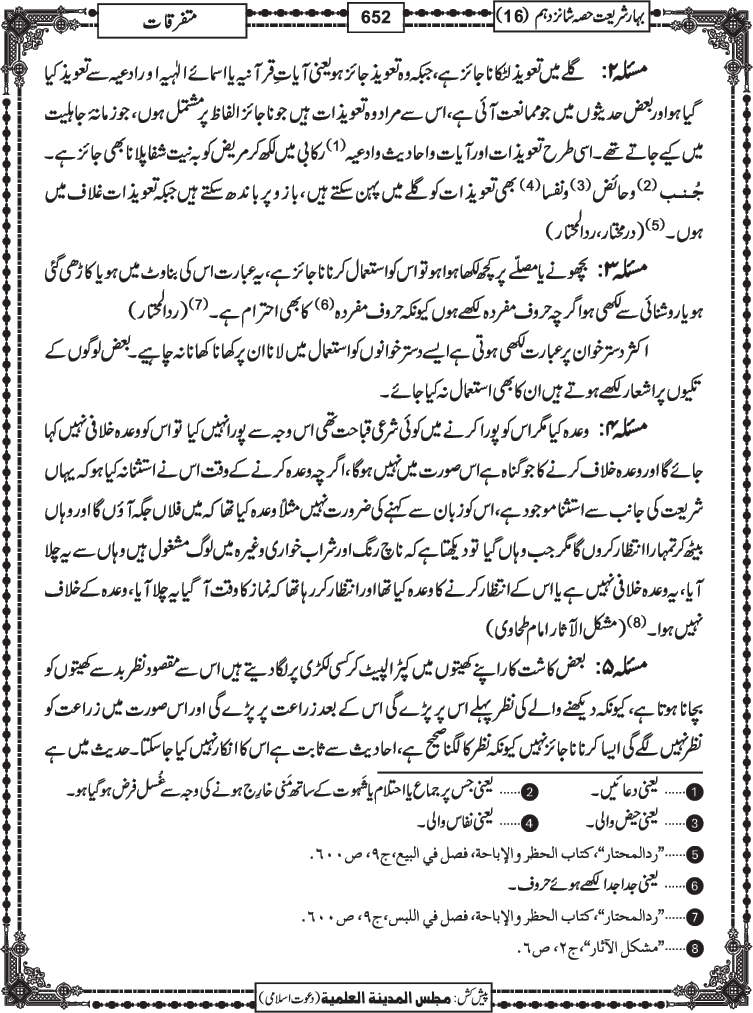 بہار شریعت حصہ شانزدہم (16)
652
متفرقات
مسئلہ ۲: گلے میں تعویذ لٹکانا جائز ہے، جبکہ وہ تعویذ جائز ہو یعنی آیاتِ قرآنیہ یا اسمائے الٰہیہ اور ادعیہ سے تعویذ کیا
گیا ہو اور بعض حدیثوں میں جو ممانعت آئی ہے، اس سے مراد وہ تعویذات ہیں جو ناجائز الفاظ پر مشتمل ہوں، جو زمانۂ جاہلیت
میں کیے جاتے تھے۔ اسی طرح تعویذات اور آیات و احادیث و ادعیہ (1) رکابی میں لکھ کر مریض کو بہ نیت شفا پلانا بھی جائز ہے۔
جُنب (2) و حائض (3) و نفسا (4) بھی تعویذات کو گلے میں پہن سکتے ہیں، بازو پر باندھ سکتے ہیں جبکہ تعویذات غلاف میں
ہوں۔ (5) (درمختار، ردالمحتار)
مسئلہ ۳: بچھونے یا مصلّے پر کچھ لکھا ہوا ہو تو اس کو استعمال کرنا ناجائز ہے، یہ عبارت اس کی بناوٹ میں ہو یا کاڑھی گئی
ہو یا روشنائی سے لکھی ہو اگرچہ حروف مفردہ لکھے ہوں کیونکہ حروف مفردہ (6) کا بھی احترام ہے۔ (7) (ردالمحتار)
اکثر دسترخوان پر عبارت لکھی ہوتی ہے ایسے دسترخوانوں کو استعمال میں لانا ان پر کھانا کھانا نہ چاہیے۔ بعض لوگوں کے
تکیوں پر اشعار لکھے ہوتے ہیں ان کا بھی استعمال نہ کیا جائے۔
مسئلہ ۴: وعدہ کیا مگر اس کو پورا کرنے میں کوئی شرعی قباحت تھی اس وجہ سے پورا نہیں کیا تو اس کو وعدہ خلافی نہیں کہا
جائے گا اور وعدہ خلاف کرنے کا جو گناہ ہے اس صورت میں نہیں ہوگا، اگرچہ وعدہ کرنے کے وقت اس نے استثنا نہ کیا ہو کہ یہاں
شریعت کی جانب سے استثنا موجود ہے، اس کو زبان سے کہنے کی ضرورت نہیں مثلاً وعدہ کیا تھا کہ میں فلاں جگہ آؤں گا اور وہاں
بیٹھ کر تمہارا انتظار کروں گا مگر جب وہاں گیا تو دیکھتا ہے کہ ناچ رنگ اور شراب خواری وغیرہ میں لوگ مشغول ہیں وہاں سے یہ چلا
آیا، یہ وعدہ خلافی نہیں ہے یا اس کے انتظار کرنے کا وعدہ کیا تھا اور انتظار کر رہا تھا کہ نماز کا وقت آگیا یہ چلا آیا، وعدہ کے خلاف
نہیں ہوا۔ (8) (مشکل الآثار امام طحاوی)
مسئلہ ۵: بعض کاشت کار اپنے کھیتوں میں کپڑا لپیٹ کر کسی لکڑی پر لگا دیتے ہیں اس سے مقصود نظر بد سے کھیتوں کو
بچانا ہوتا ہے، کیونکہ دیکھنے والے کی نظر پہلے اس پر پڑے گی اس کے بعد زراعت پر پڑے گی اور اس صورت میں زراعت کو
نظر نہیں لگے گی ایسا کرنا ناجائز نہیں کیونکہ نظر کا لگنا صحیح ہے، احادیث سے ثابت ہے اس کا انکار نہیں کیا جاسکتا۔ حدیث میں ہے
1 ...... یعنی دعائیں۔ 2 ...... یعنی جس پر جماع یا احتلام یا شہوت کے ساتھ مَنی خارِج ہونے کی وجہ سے غُسل فرض ہو گیا ہو۔
3 ...... یعنی حیض والی۔ 4 ...... یعنی نفاس والی۔
5 ......”ردالمحتار“، کتاب الحظر والإباحة، فصل في البیع، ج۹، ص۶۰۰.
6 ...... یعنی جدا جدا لکھے ہوئے حروف۔
7 ......”ردالمحتار“، کتاب الحظر والإباحة، فصل في اللبس، ج۹، ص۶۰۰.
8 ......”مشکل الآثار“، ج۲، ص۶.
پیش کش: مجلس المدینة العلمیة (دعوت اسلامی)